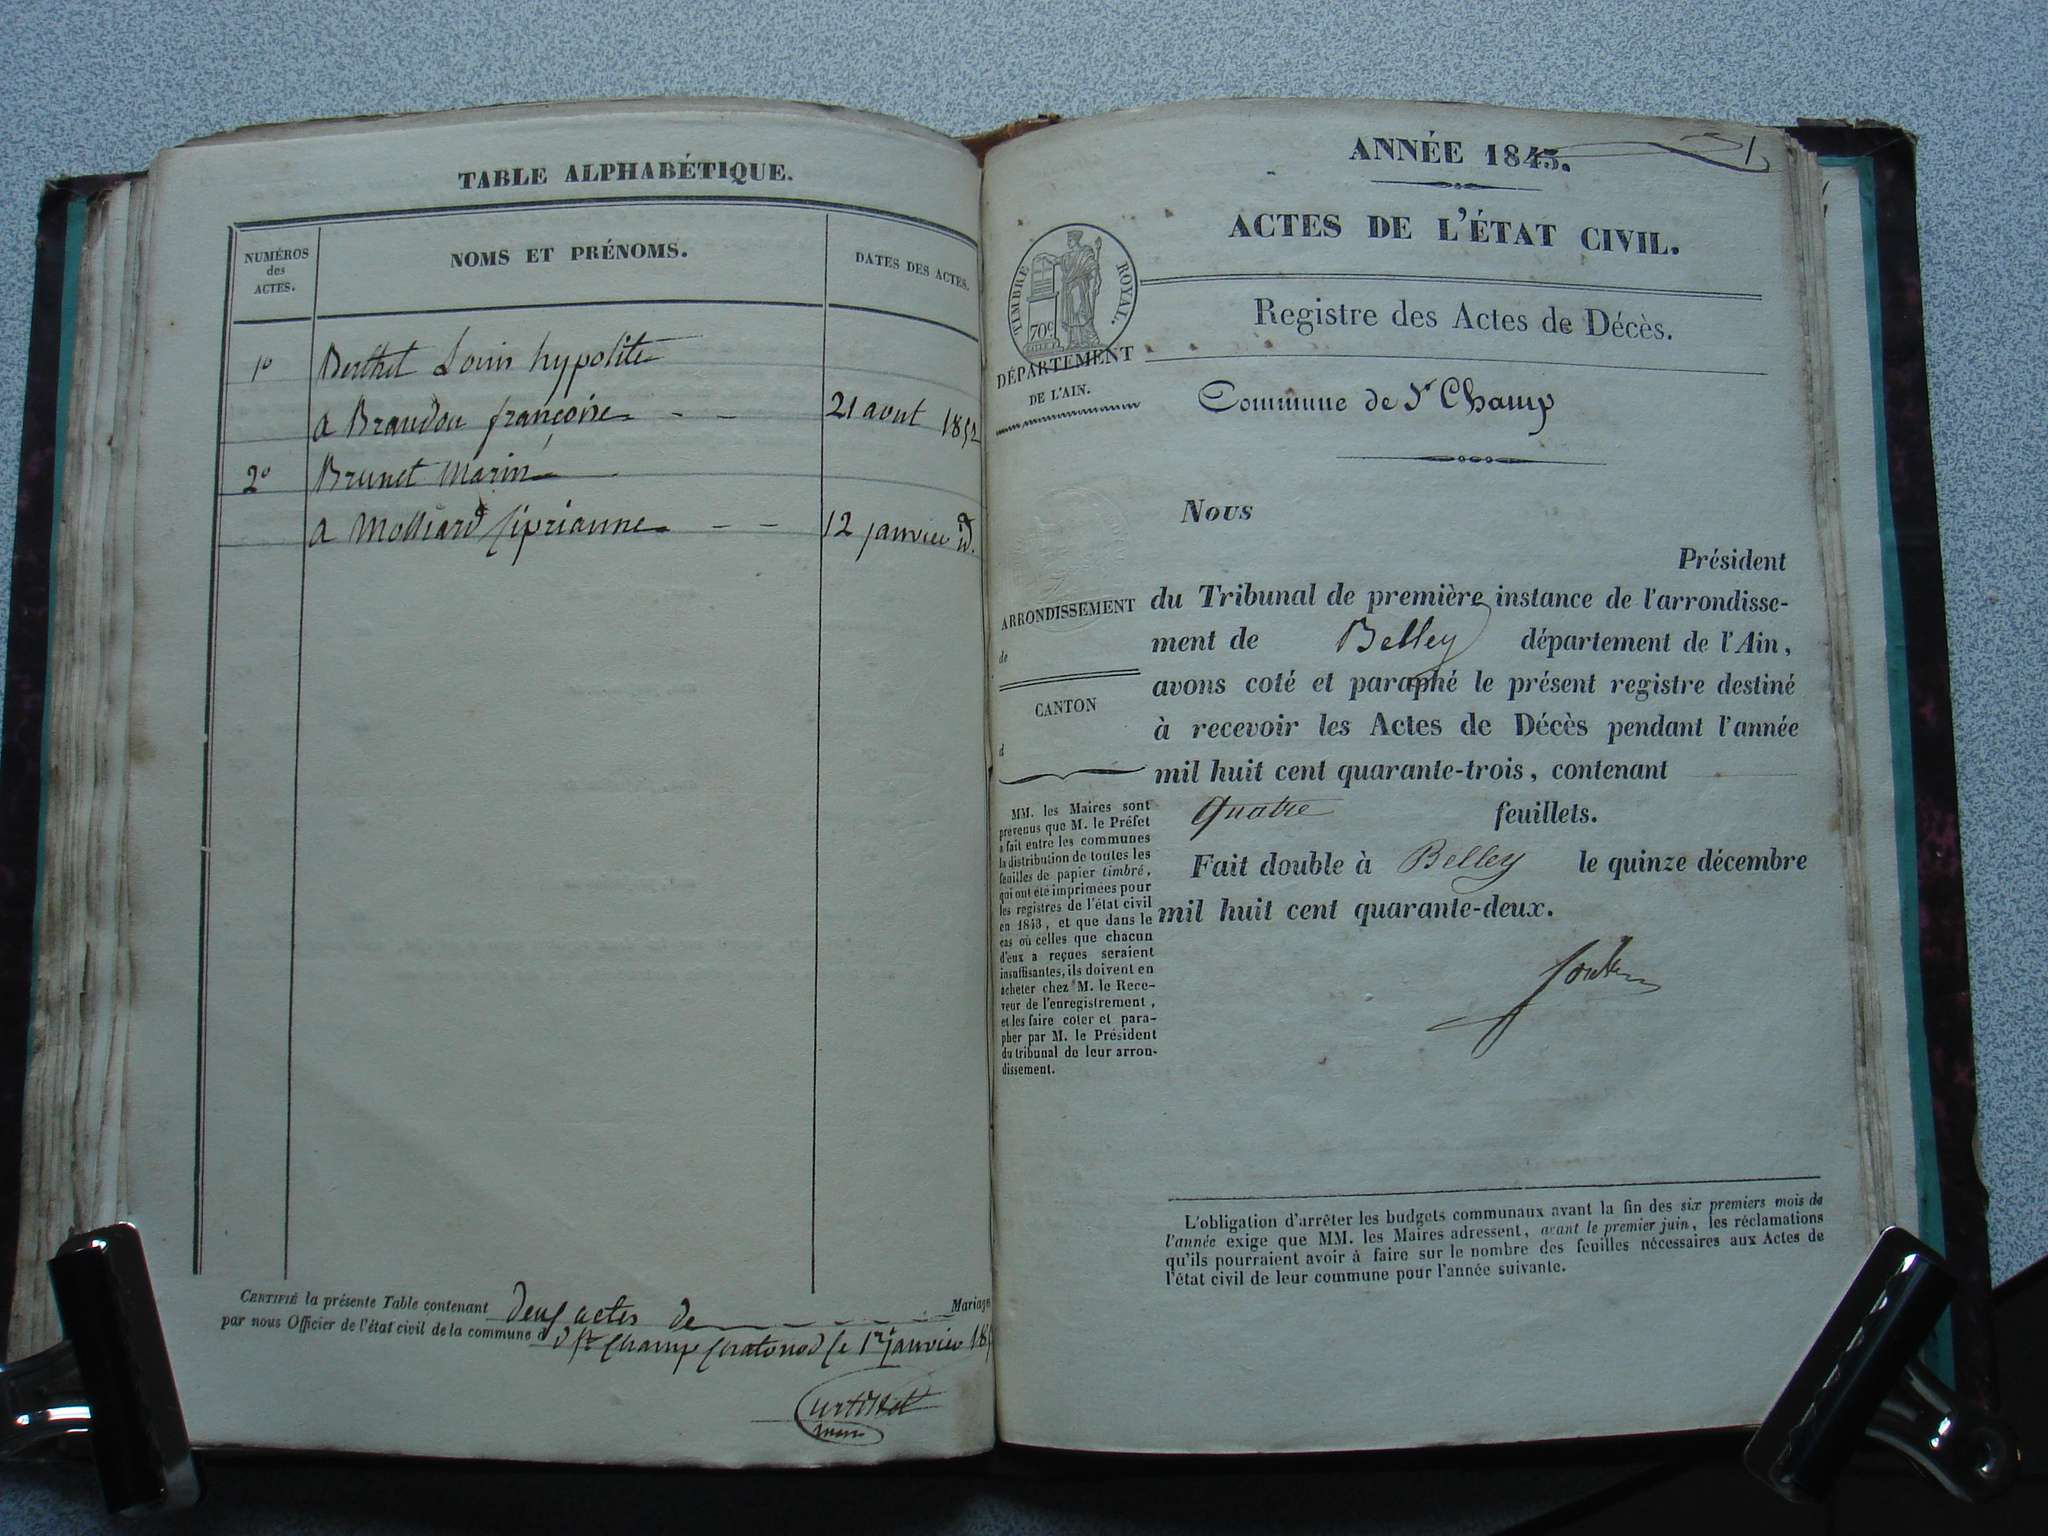 TABLE ALPHABÉTIQUE.
NUMÉROS
des
ACTES.
NOMS ET PRÉNOMS.
DATES DES ACTES.
1o Berthet Louis hypolite
a Braudou françoise - - 21 aout 1852
2o Brunet Marin
a Molliard Ciprianne - - 12 janvier id.
CERTIFIÉ la présente Table contenant deux actes de Mariage
par nous Officier de l'état civil de la commune d St Champ Chatonod le 1er janvier 18
maire
1
ANNÉE 1843.
ACTES DE L'ÉTAT CIVIL.
TIMBRE ROYAL.
70c
Registre des Actes de Décès.
DÉPARTEMENT
DE L'AIN.
Commune de St Champ
Nous
Président
ARRONDISSEMENT
de
CANTON
d
du Tribunal de première instance de l'arrondisse-
ment de Belley département de l'Ain,
avons coté et paraphé le présent registre destiné
à recevoir les Actes de Décès pendant l'année
mil huit cent quarante-trois, contenant
Quatre feuillets.
Fait double à Belley le quinze décembre
mil huit cent quarante-deux.
MM. les Maires sont
prévenus que M. le Préfet
a fait entre les communes
la distribution de toutes les
feuilles de papier timbré,
qui ont été imprimées pour
les registres de l'état civil
en 1843, et que dans le
cas où celles que chacun
d'eux a reçues seraient
insuffisantes, ils doivent en
acheter chez M. le Rece-
veur de l'enregistrement,
et les faire coter et para-
pher par M. le Président
du tribunal de leur arron-
dissement.
L'obligation d'arrêter les budgets communaux avant la fin des six premiers mois de
l'année exige que MM. les Maires adressent, avant le premier juin, les réclamations
qu'ils pourraient avoir à faire sur le nombre des feuilles nécessaires aux Actes de
l'état civil de leur commune pour l'année suivante.